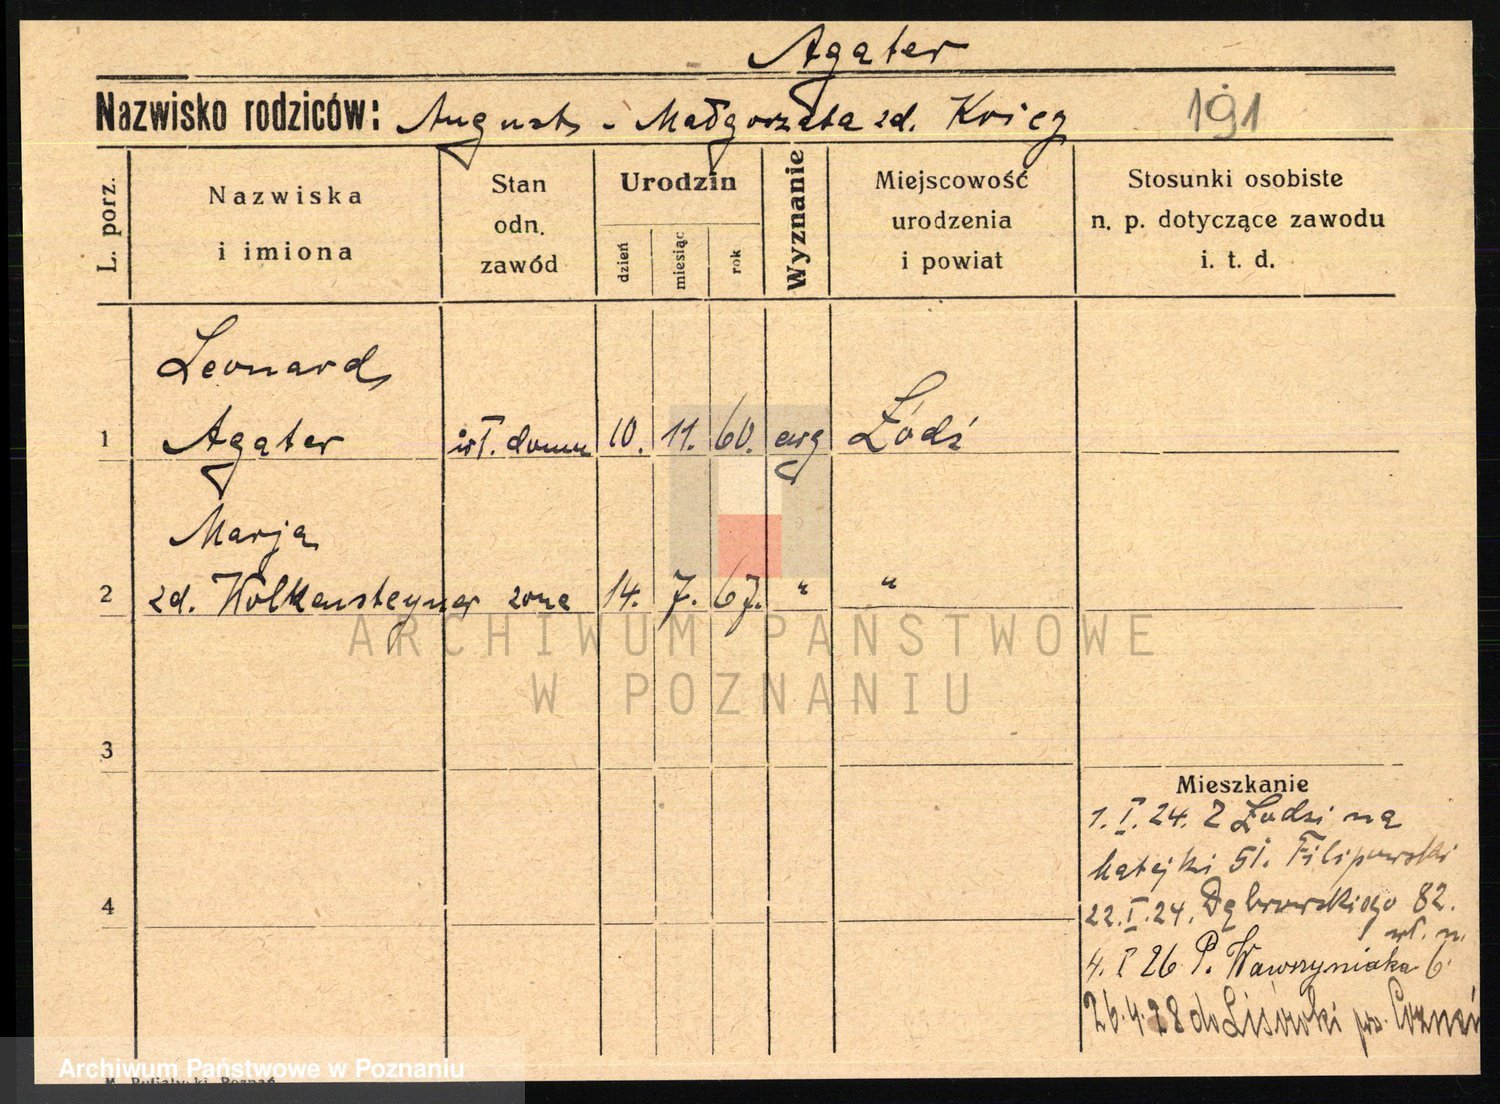 Agater
Nazwisko rodziców: August - Małgorzata zd. Krieg 191
L. porz.
Nazwiska
i imiona
Stan
odn.
zawód
Urodzin
dzień
miesiąc
rok
Wyznanie
Miejscowość
urodzenia
i powiat
Stosunki osobiste
n. p. dotyczące zawodu
i. t. d.
Leonard
1 Agater wł. domu 10. 11. 60. ewg Łódź
Marja
2 zd. Wolkensteyner żona 14. 7. 67. " "
ARCHIWUM PAŃSTWOWE
W POZNANIU
3
Mieszkanie
1. I. 24. Z Łodzi na
Matejki 51. Filipowski
4
22. I. 24. Dąbrowskiego 82.
wł. m.
4. I 26 P. Wawrzyniaka 6
26.4.28 do Lisówki pow. Poznań
Archiwum Państwowe w Poznaniu
Poznań